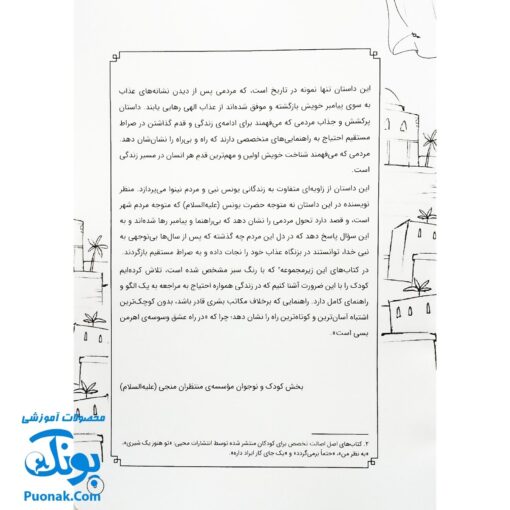 این داستان تنها نمونه در تاریخ است، که مردمی پس از دیدن نشانه‌های عذاب
به سوی پیامبر خویش بازگشته و موفق شده‌اند از عذاب الهی رهایی یابند. داستان
پرکشش و جذاب مردمی که می‌فهمند برای ادامه‌ی زندگی و قدم گذاشتن در صراط
مستقیم احتیاج به راهنمایی‌های متخصصی دارند که راه و بی‌راه را نشان‌شان دهد.
مردمی که می‌فهمند شناخت خویش اولین و مهم‌ترین قدم هر انسان در مسیر زندگی
است.
این داستان از زاویه‌ای متفاوت به زندگانی یونس نبی و مردم نینوا می‌پردازد. منظر
نویسنده در این داستان نه متوجه حضرت یونس (علیه‌السلام) که متوجه مردم شهر
است، و قصد دارد تحول مردمی را نشان دهد که بی‌راهنما و پیامبر رها شده‌اند و به
این سؤال پاسخ دهد که در دل این مردم چه گذشته که پس از سال‌ها بی‌توجهی به
نبی خدا، توانستند در بزنگاه عذاب خود را نجات داده و به صراط مستقیم بازگردند.
در کتاب‌های این زیرمجموعه۲ که با رنگ سبز مشخص شده است، تلاش کرده‌ایم
کودک را با این ضرورت آشنا کنیم که در زندگی همواره احتیاج به مراجعه به یک الگو و
راهنمای کامل دارد. راهنمایی که برخلاف مکاتب بشری قادر باشد، بدون کوچک‌ترین
اشتباه آسان‌ترین و کوتاه‌ترین راه را نشان دهد؛ چرا که «در راه عشق وسوسه‌ی اهرمن
بسی است».
بخش کودک و نوجوان مؤسسه‌ی منتظران منجی (علیه‌السلام)
۲. کتاب‌های اصل اصالت تخصص برای کودکان منتشر شده توسط انتشارات محیی: «تو هنوز یک شیری»،
«به نظر من»، «حتماً برمی‌گردد» و «یک جای کار ایراد داره».
محصولات آموزشی
پونک
Puonak.Com